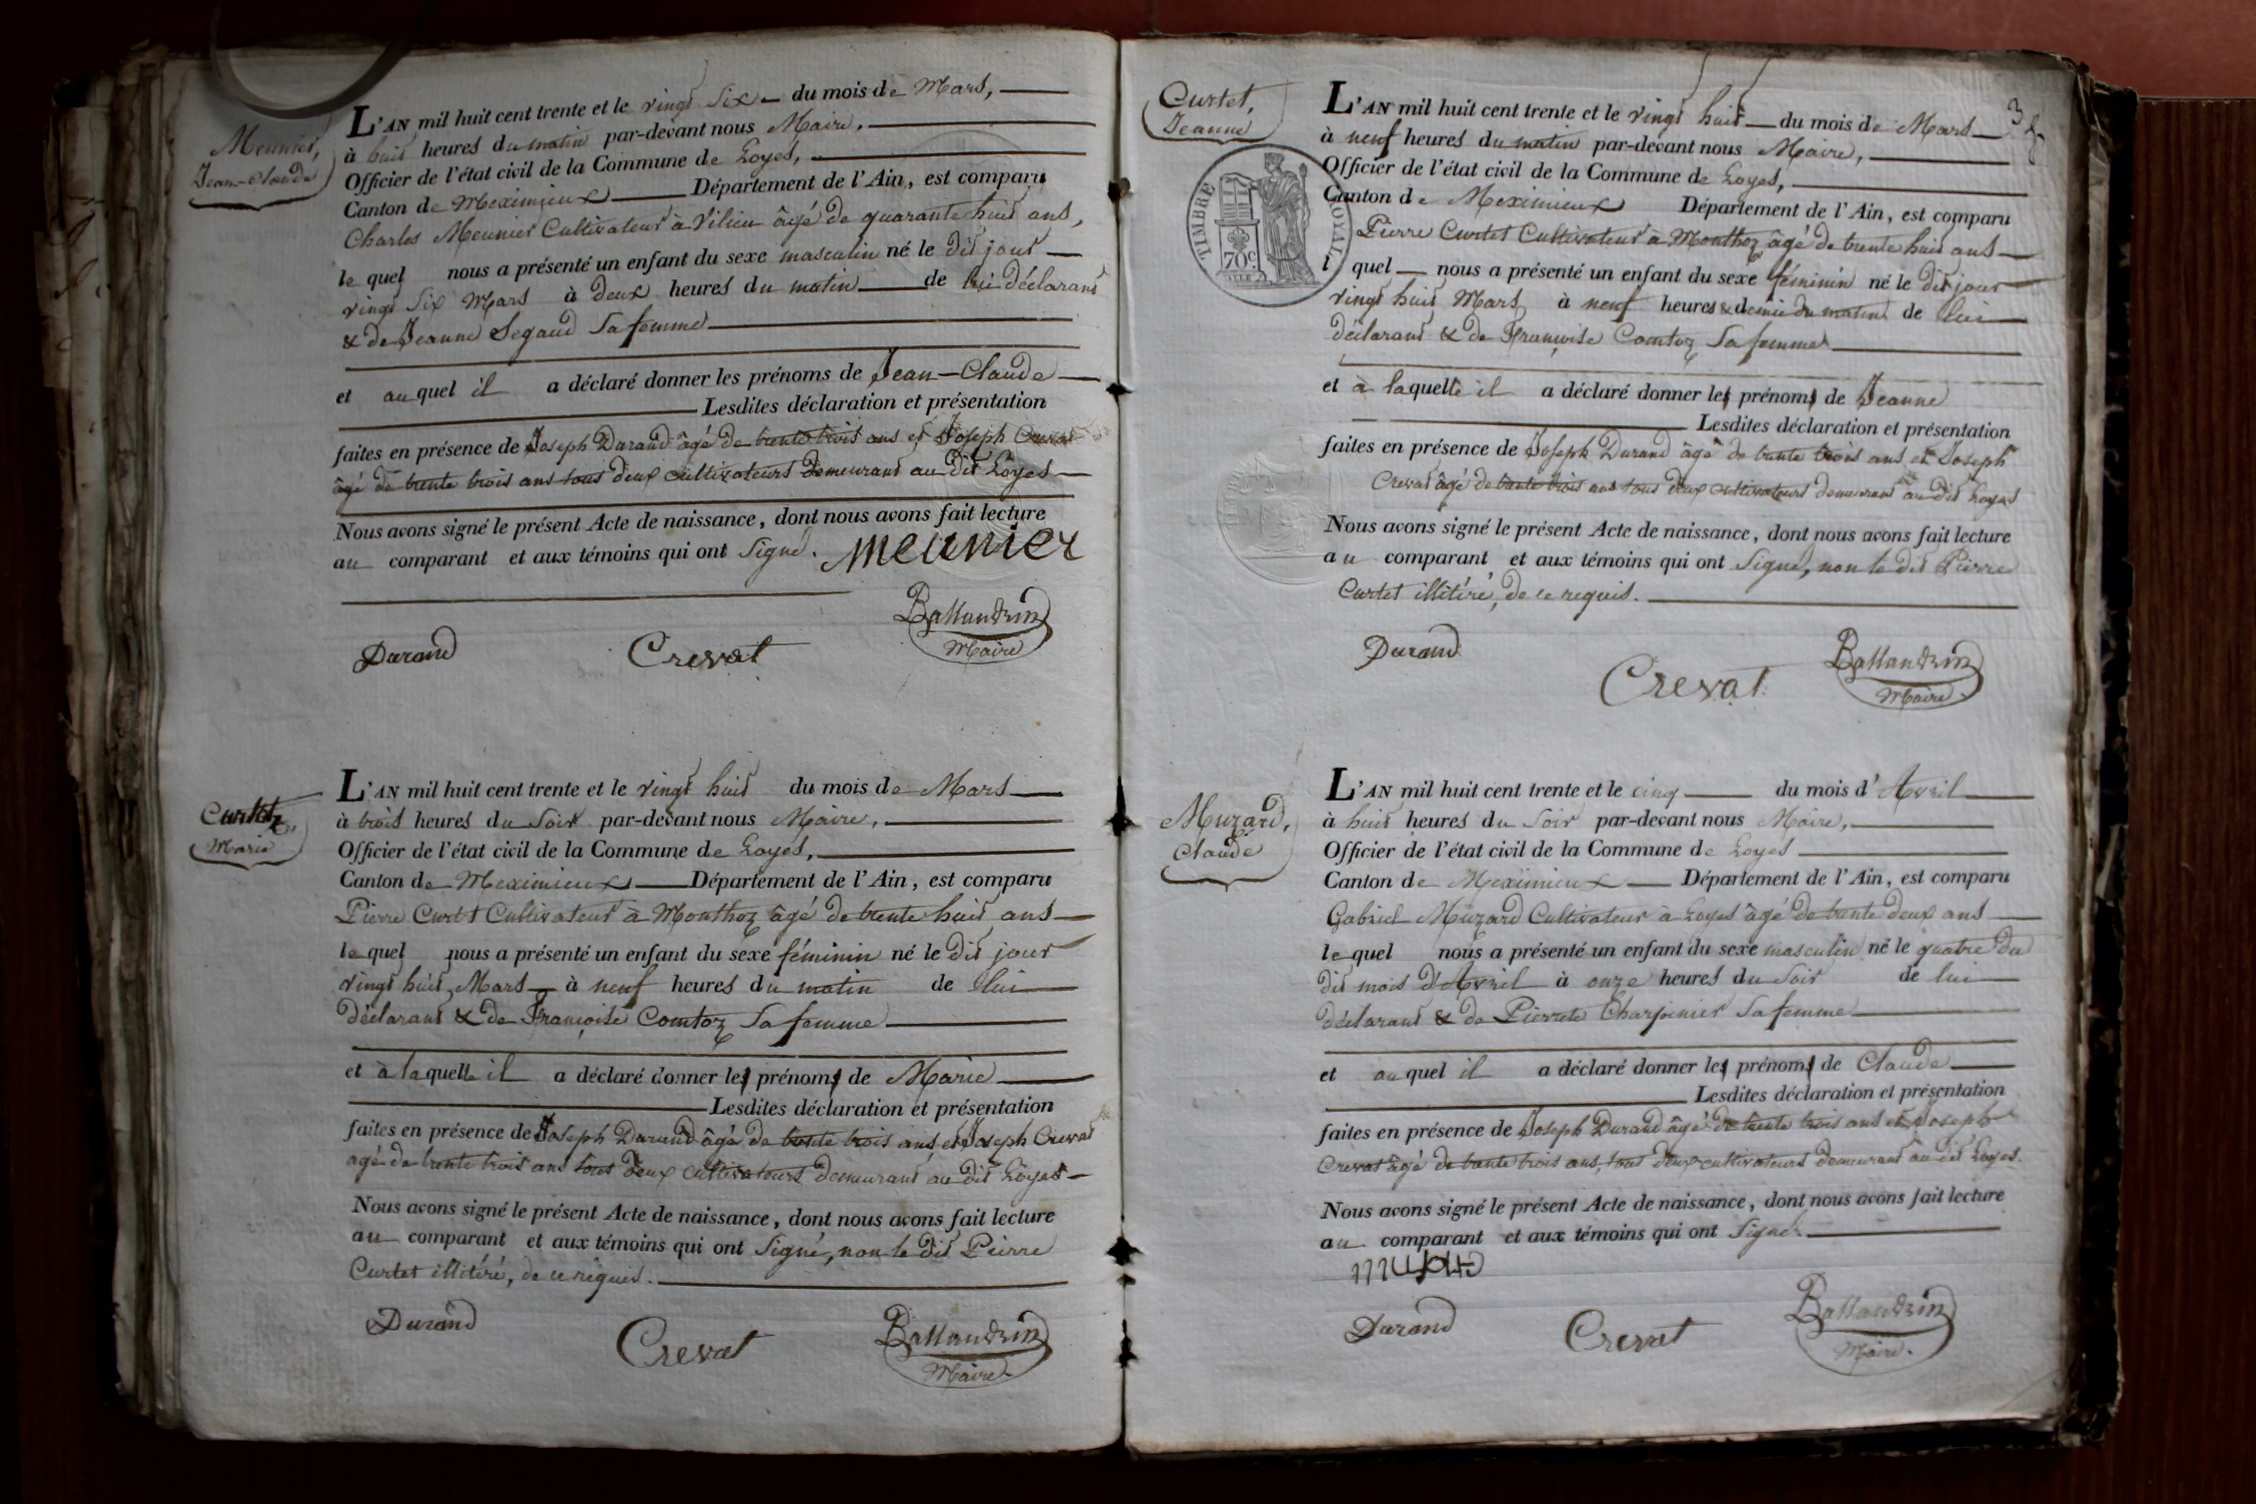 Meunier,
Jean-Claude
L'AN mil huit cent trente et le vingt Six du mois de Mars,
à huit heures du matin par-devant nous Maire,
Officier de l'état civil de la Commune de Loyes,
Canton de Meximieux Département de l'Ain, est comparu
Charles Meunier Cultivateur à Vilieu âgé de quarante huit ans,
le quel nous a présenté un enfant du sexe masculin né le dit jour
vingt Six Mars à deux heures du matin de lui déclarant
& de Jeanne Segaud Sa femme
et au quel il a déclaré donner les prénoms de Jean-Claude
Lesdites déclaration et présentation
faites en présence de Joseph Durand âgé de trente trois ans et Joseph Crevat
âgé de trente trois ans tous deux cultivateurs demeurant au dit Loyes
Nous avons signé le présent Acte de naissance, dont nous avons fait lecture
au comparant et aux témoins qui ont Signé. meunier
Ballandrin
Maire
Durand Crevat
Curtet
Marie
L'AN mil huit cent trente et le vingt huit du mois de Mars
à trois heures du Soir par-devant nous Maire,
Officier de l'état civil de la Commune de Loyes,
Canton de Meximieux Département de l'Ain, est comparu
Pierre Curtet Cultivateur à Monthoz âgé de trente huit ans
le quel nous a présenté un enfant du sexe féminin né le dit jour
vingt huit Mars à neuf heures du matin de lui
déclarant & de Françoise Comtoz Sa femme
et à laquelle il a déclaré donner les prénoms de Marie
Lesdites déclaration et présentation
faites en présence de Joseph Durand âgé de trente trois ans et Joseph Crevat
agé de trente trois ans tous deux cultivateurs demeurant au dit Loyes
Nous avons signé le présent Acte de naissance, dont nous avons fait lecture
au comparant et aux témoins qui ont Signé, non le dit Pierre
Curtet illitéré, de ce requis.
Durand Crevat Ballandrin
Maire
3
Curtet,
Jeanne
TIMBRE ROYAL
70c
L'AN mil huit cent trente et le vingt huit du mois de Mars
à neuf heures du matin par-devant nous Maire,
Officier de l'état civil de la Commune de Loyes,
Canton de Meximieux Département de l'Ain, est comparu
Pierre Curtet Cultivateur à Monthoz âgé de trente huit ans
l quel nous a présenté un enfant du sexe féminin né le dit jour
vingt huit Mars à neuf heures & demie du matin de lui
déclarant & de Françoise Comtoz Sa femme
et à laquelle il a déclaré donner les prénoms de Jeanne
Lesdites déclaration et présentation
faites en présence de Joseph Durand âgé de trente trois ans et Joseph
Crevat âgé de trente trois ans tous deux cultivateurs demeurant au dit Loyes
Nous avons signé le présent Acte de naissance, dont nous avons fait lecture
au comparant et aux témoins qui ont Signé, non le dit Pierre
Curtet illitéré, de ce requis.
Durand Crevat Ballandrin
Maire
Muzard,
Claude
L'AN mil huit cent trente et le cinq du mois d'Avril
à huit heures du Soir par-devant nous Maire,
Officier de l'état civil de la Commune de Loyes
Canton de Meximieux Département de l'Ain, est comparu
Gabriel Muzard Cultivateur à Loyes âgé de trente deux ans
le quel nous a présenté un enfant du sexe masculin né le quatre du
dit mois d'Avril à onze heures du Soir de lui
déclarant & de Pierrete Charpinier Sa femme
et au quel il a déclaré donner les prénoms de Claude
Lesdites déclaration et présentation
faites en présence de Joseph Durand âgé de trente trois ans et Joseph
Crevat âgé de trente trois ans, tous deux cultivateurs demeurant au dit Loyes.
Nous avons signé le présent Acte de naissance, dont nous avons fait lecture
au comparant et aux témoins qui ont Signé
Durand Crevat Ballandrin
Maire.